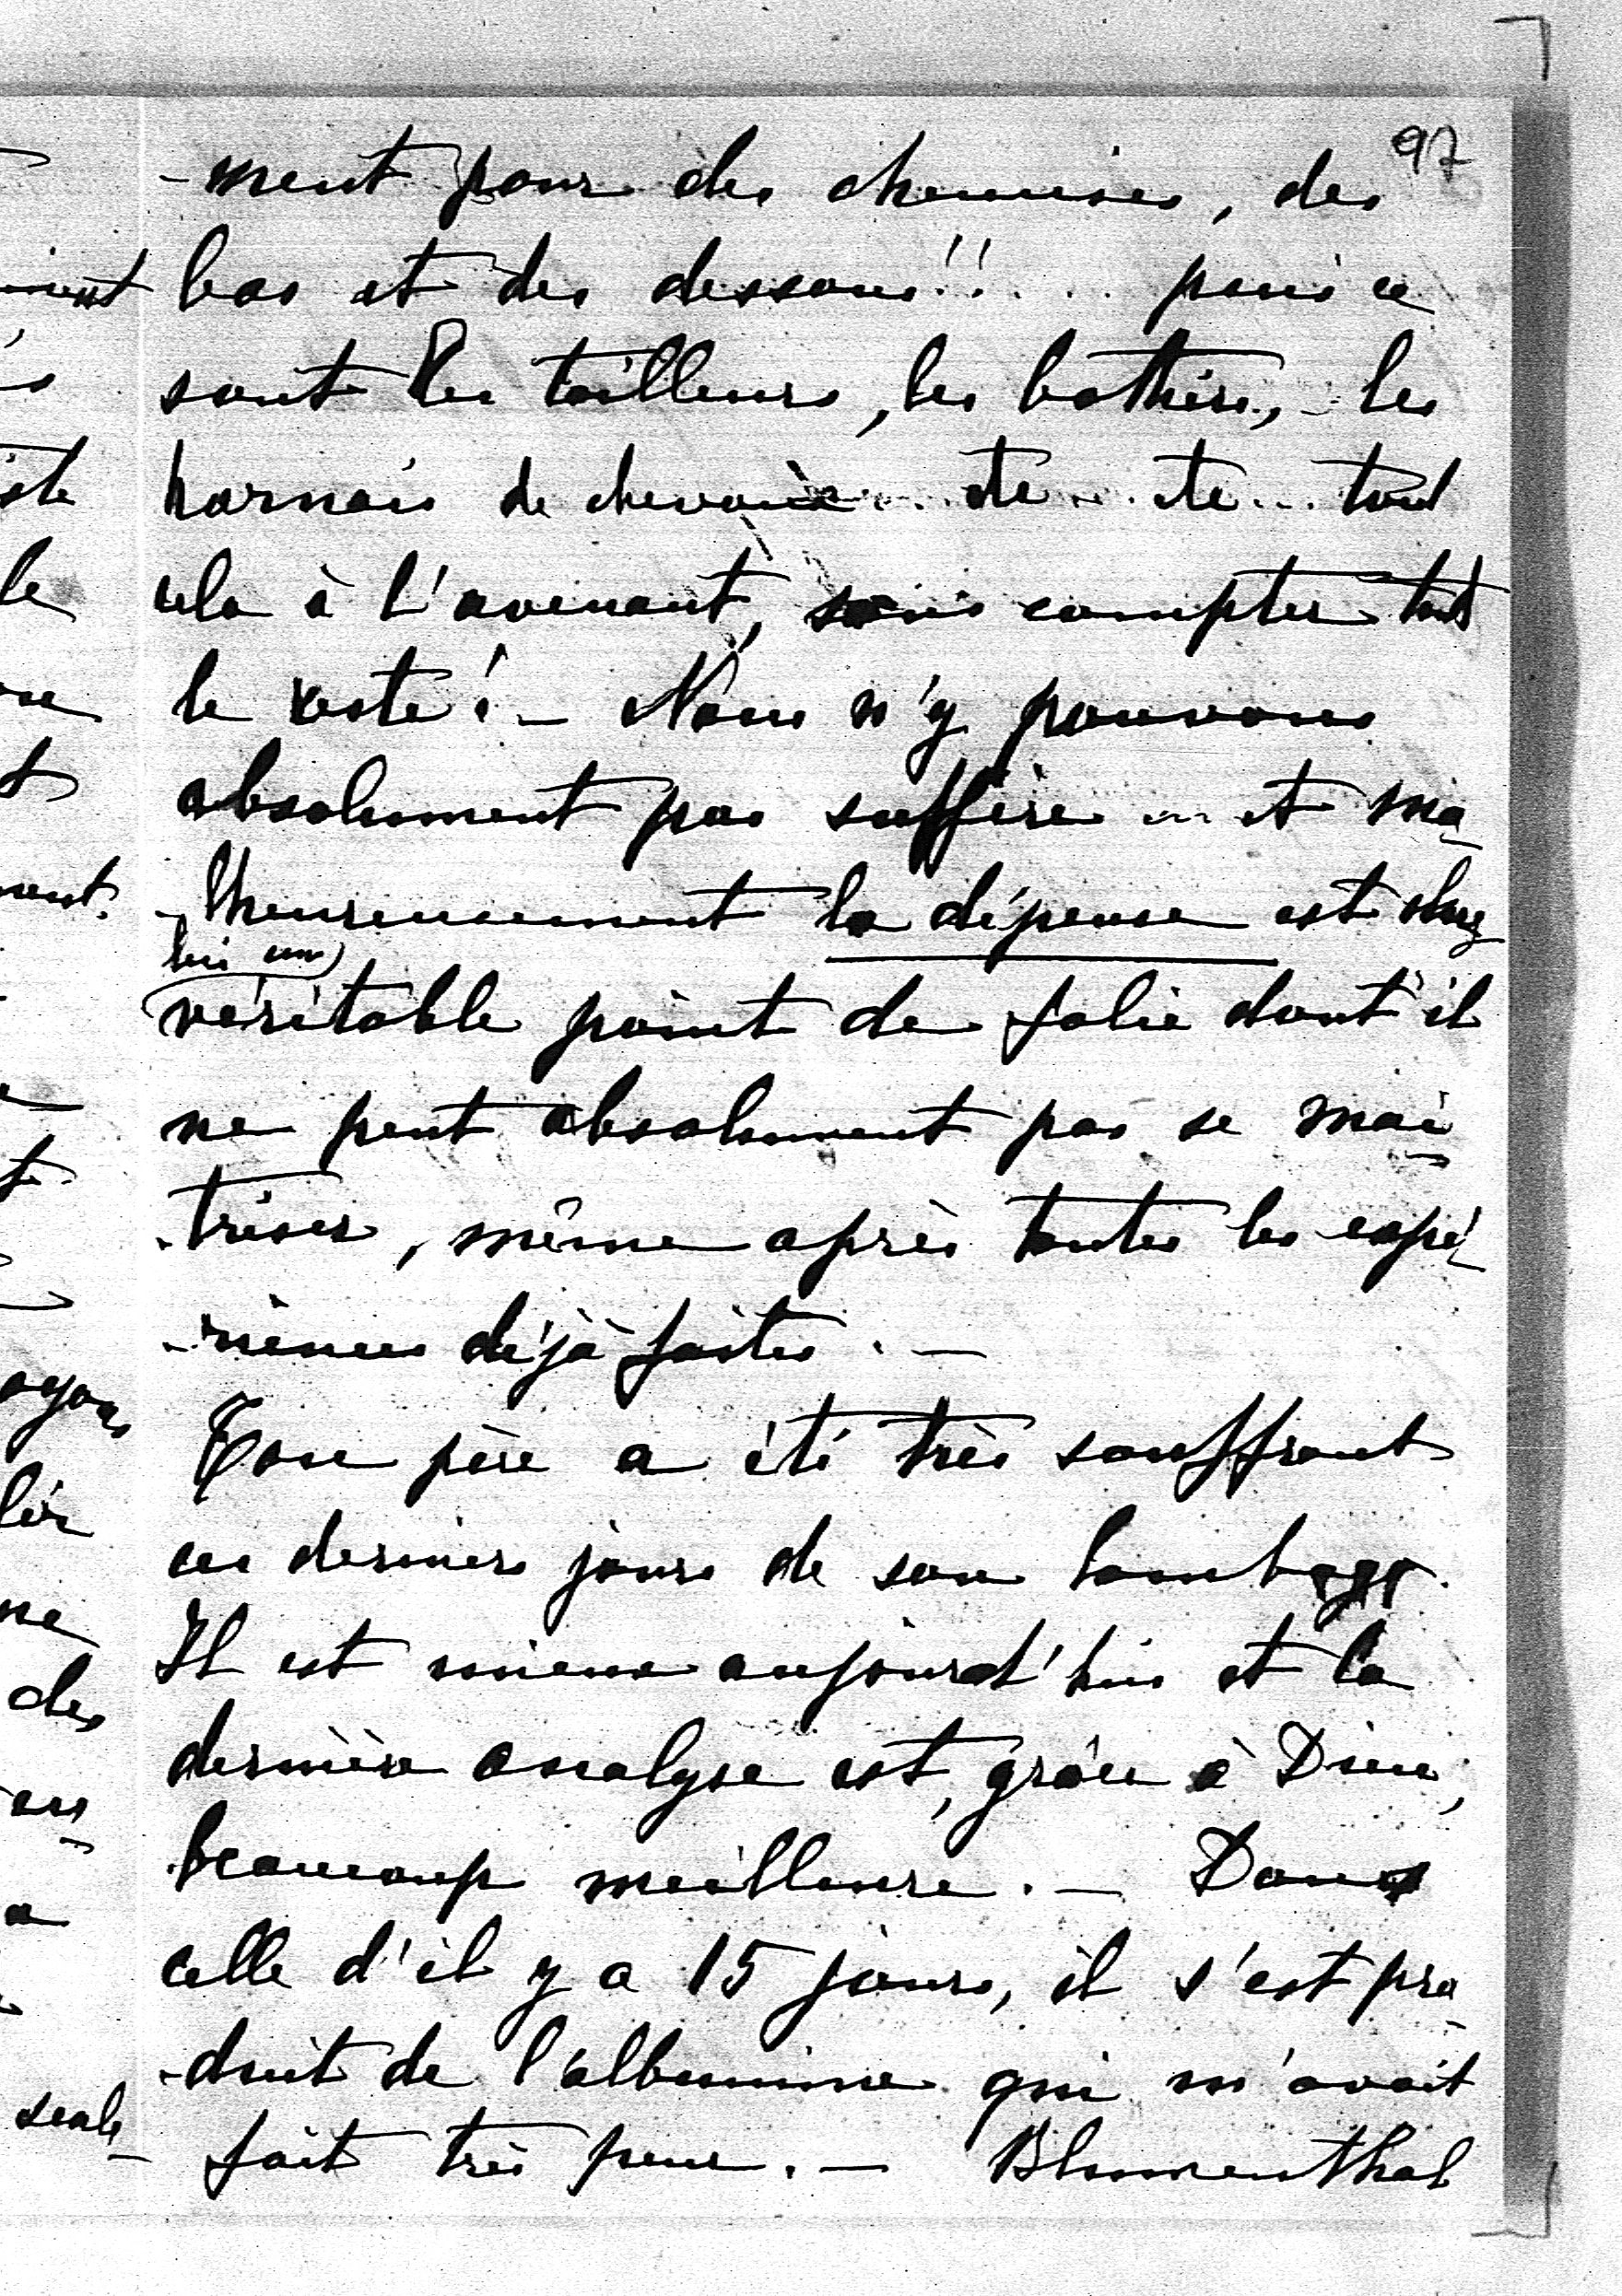 97
-ment pour des chemises, des
bas et des dessous!!... puis ce
sont les tailleurs, les bottiers, les
harnais de chevaux... etc... etc... tout
cela à l'avenant, sans compter tout
le reste! – Nous n'y pouvons
absolument pas suffire ... et ma-
-lheureusement la dépense est chez
lui un
véritable point de folie dont il
ne peut absolument pas se maî-
-triser, même après toutes les expé-
-riences déjà faites. –
Ton père a été très souffrant
ces derniers jours de son lombago.
Il est mieux aujourd'hui et la
dernière analyse est, grâce à Dieu,
beaucoup meilleure. – Dans
celle d'il y a 15 jours, il s'est pro-
-duit de l'albumine qui m'avait
fait très peur. – Blumenthal